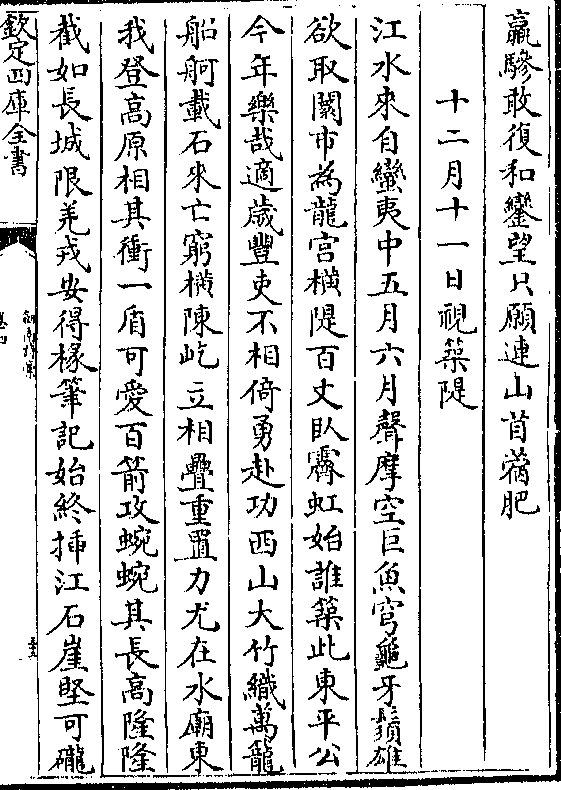 羸驂敢復和鑾望只願連山苜蓿肥
十二月十一日視築隄
江水來自蠻夷中五月六月聲摩空巨魚穹龜牙鬚雄
欲取闤市為龍宮橫隄百丈臥霽虹始誰築此東平公
今年樂哉適歲豐吏不相倚勇赴功西山大竹織萬籠
船舸載石來亡窮橫陳屹立相疊重置力尤在水廟東
我登高原相其衝一盾可愛百箭攻蜿蜿其長高隆隆
截如長城限羌戎安得椽筆記始終揷江石崖堅可礲
欽定四庫全書